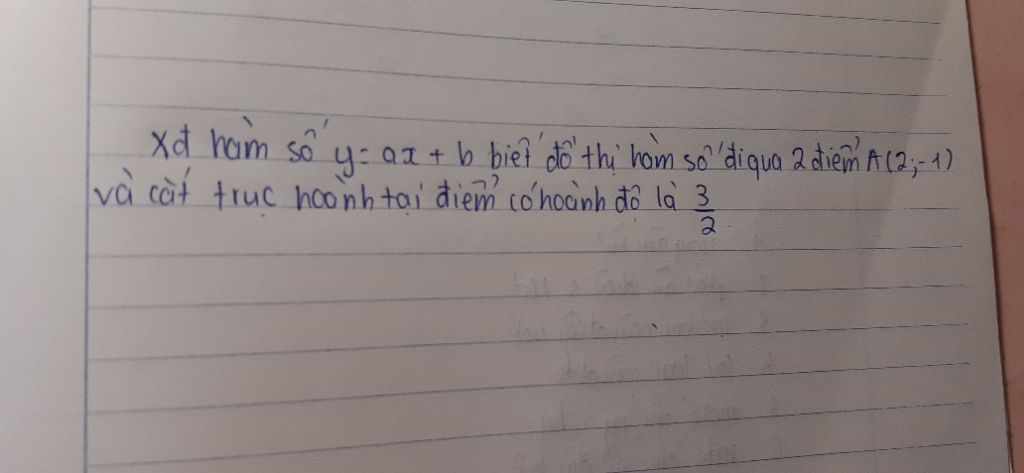 Xđ hàm số y = ax + b biết đồ thị hàm số đi qua 2 điểm A(2;-1)
và cắt trục hoành tại điểm có hoành độ là 3/2